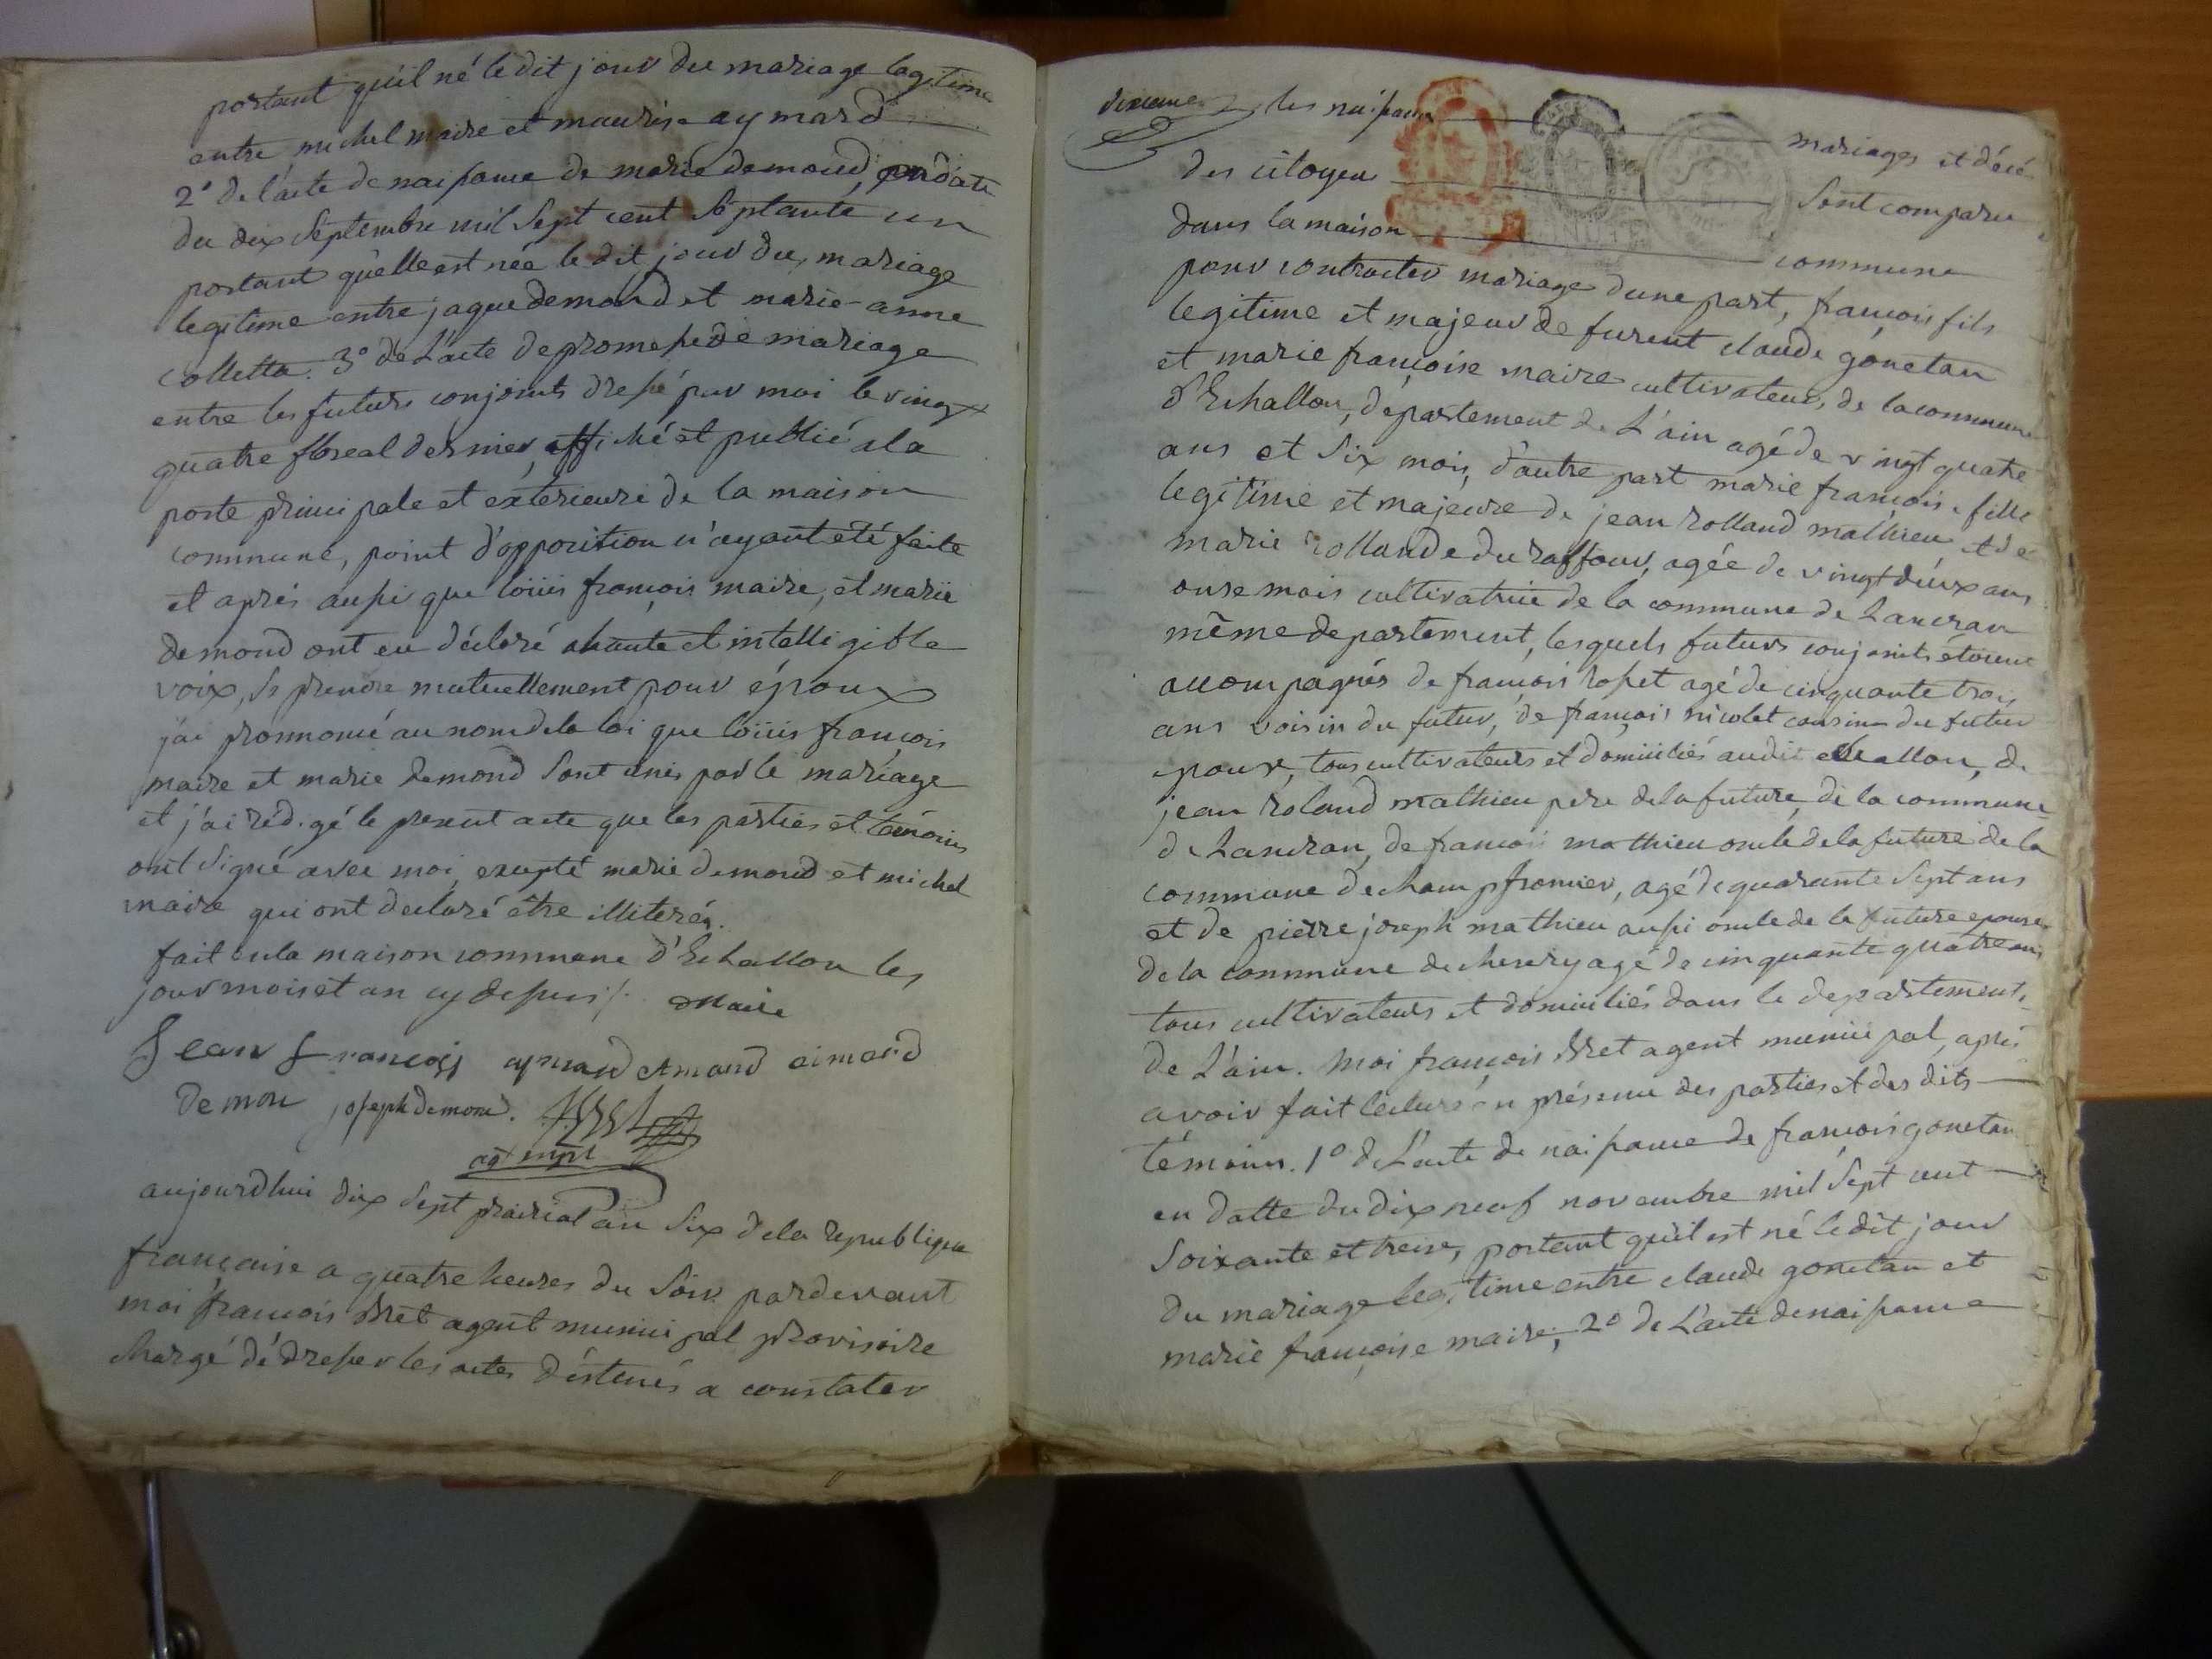 portant qu'il né le dit jour du mariage legitime
entre michel maire et maurise aymard
2° de l'acte de naissance de marie demond, en date
du dix septembre mil sept cent septante un
portant qu'elle est née le dit jour du mariage
legitime entre jaque demond et marie-anne
colletta. 3° de l'acte de promesse de mariage
entre les futurs conjoints dressé par moi le vingt
quatre floreal dernier, affiché et publié a la
porte principale et exterieure de la maison
commune, point d'opposition n'ayant été faite
et aprés aussi que loüis françois maire, et marie
demond ont eu déclaré ahaute et intelligible
voix, se prendre mutuellement pour époux
j'ai prononcé au nom de la loi que loüis françois
maire et marie demond sont unis par le mariage
et j'ai rédigé le present acte que les parties et témoins
ont signé avec moi, excepté marie demond et michel
maire qui ont declaré être illiterés.
fait en la maison commune d'Echallon les
jour mois et an cy dessus /. Maire
Jean françois aymard Amand aimard
Demon joseph demond.
agt mpl
aujourdhui dix sept prairial an six de la republique
française a quatre heures du soir pardevant
moi françois Bret agent municipal provisoire
chargé dédresser les actes déstinés a constater
dixieme les naissances mariages et décé
des citoyens sont comparu
dans la maison commune
pour contracter mariage d'une part, françois fils
legitime et majeur de furent claude gonetan
et marie françoise maire cultivateur, de la commune
d'Echallon, département de L'ain agé de vingt quatre
ans et six mois, d'autre part marie françoise fille
legitime et majeure de jean rolland mathieu et de
marie rollande du raffour, agée de vingt deux ans
onse mois cultivatrice de la commune de Lancran
même departement, lesquels futurs conjoints étoient
accompagnés de françois rosset agé de cinquante trois
ans voisin du futur, de françois nicolet cousin du futur
epoux, tous cultivateurs et domiciliés audit echallon, de
jean roland mathieu pere de la future de la commune
de Lancran, de françois mathieu oncle de la future de la
commune de champfromier, agé de quarante sept ans
et de pierre joseph mathieu aussi oncle de la future epouse
de la commune de chesery agé de cinquante quatre ans
tous cultivateurs et domiciliés dans le departement
de L'ain. Moi françois Bret agent municipal, aprés
avoir fait lecture en présence des parties et des dits
témoins. 1° de L'acte de naissance de françois gonetan
en datte du dix neuf novembre mil sept cent
soixante et treise, portant qu'il est né le dit jour
du mariage legitime entre claude gonetan et
marie françoise maire; 2° de L'acte de naissance